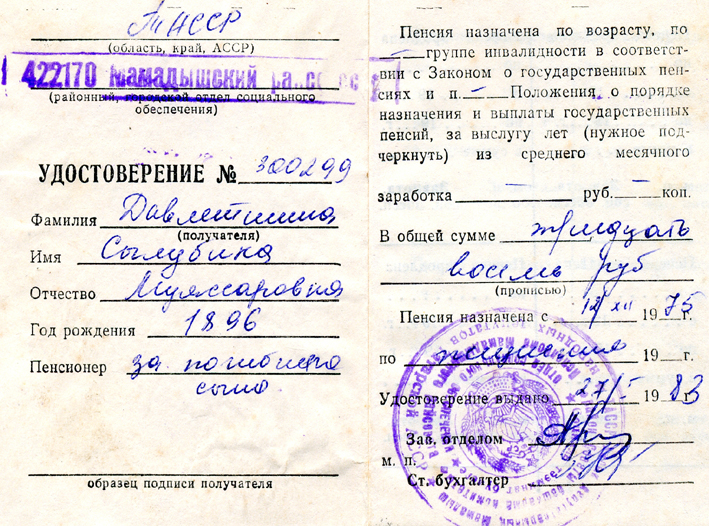 ТАССР
(область, край, АССР)
422170 Мамадышский райсобес
(районный, городской отдел социального
обеспечения)
УДОСТОВЕРЕНИЕ № 300299
Фамилия Давлетшина
(получателя)
Имя Сылубика
Отчество Муяссаровна
Год рождения 1896
Пенсионер за погибшего
сына
образец подписи получателя
Пенсия назначена по возрасту, по
группе инвалидности в соответст-
вии с Законом о государственных пен-
сиях и п. Положения о порядке
назначения и выплаты государственных
пенсий, за выслугу лет (нужное под-
черкнуть) из среднего месячного
заработка — руб. — коп.
В общей сумме тридцать
восемь руб
(прописью)
Пенсия назначена с 12/XII 1975 г.
по пожизненно 19 г.
Удостоверение выдано 27/I 1983 г.
Зав. отделом
м. п.
Ст. бухгалтер